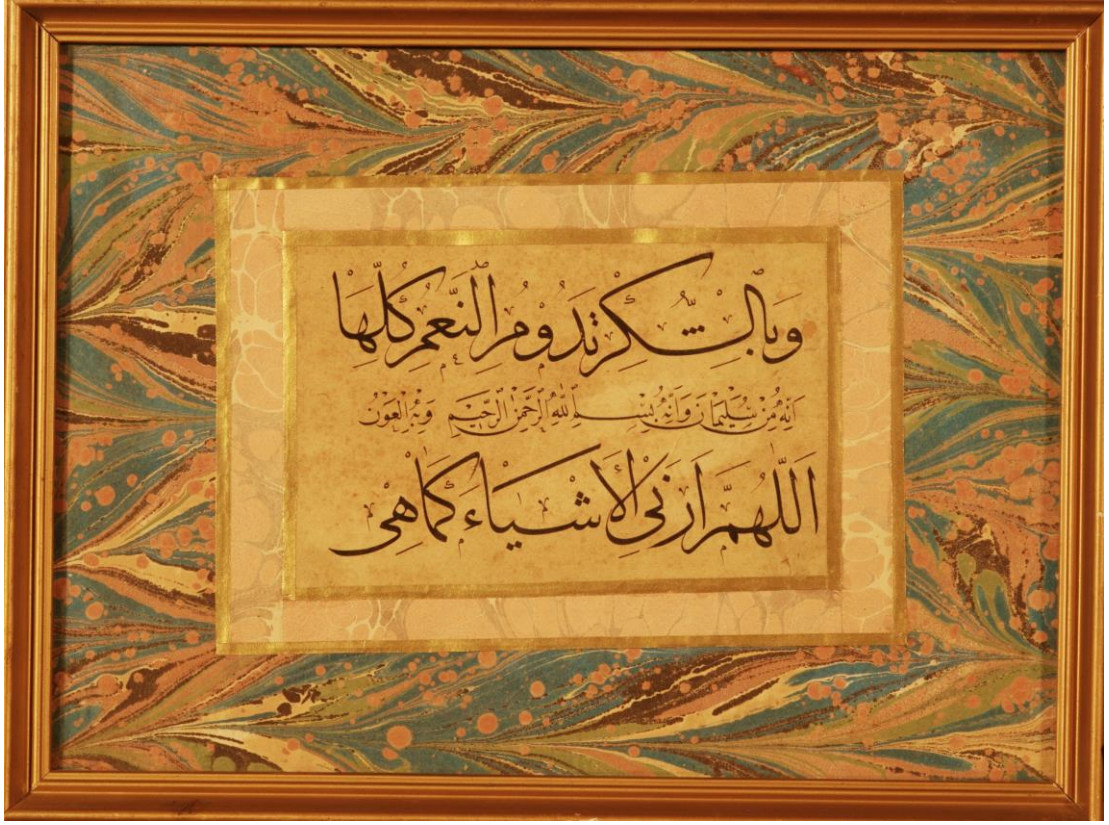 وَبِالشُّكْرِ تَدُومُ النِّعَمُ كُلُّهَا
اِنَّهُ مِنْ سُلَيْمَانَ وَاِنَّهُ بِسْمِ اللّٰهِ الرَّحْمٰنِ الرَّحِيمِ وَبِهِ الْعَوْنُ
اَللّٰهُمَّ اَرِنِى الْاَشْيَاءَ كَمَا هِىَ